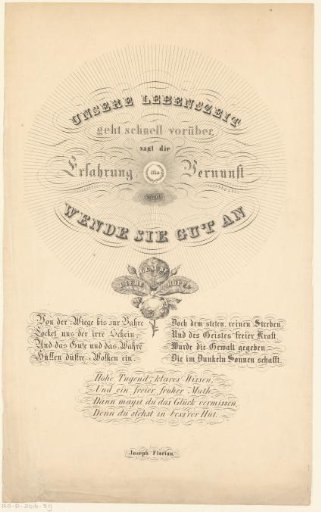 UNSERE LEBENSZEIT
geht schnell vorüber,
sagt die
Erfahrung
die
Vernunft
sagt
WENDE SIE GUT AN
Von der Wiege bis zur Bahre
Locket uns der irre Schein,
Und das Gute und das Wahre
Hüllen düstre Wolken ein.
Doch dem steten, reinen Streben
Und des Geistes freier Kraft
Wurde die Gewalt gegeben
Die im Dunkeln Sonnen schafft.
Hohe Tugend, klares Wissen
Und ein freier froher Muth
Dann magst du das Glück vermissen
Denn du stehst in bess'rer Hut.
Joseph Florian.